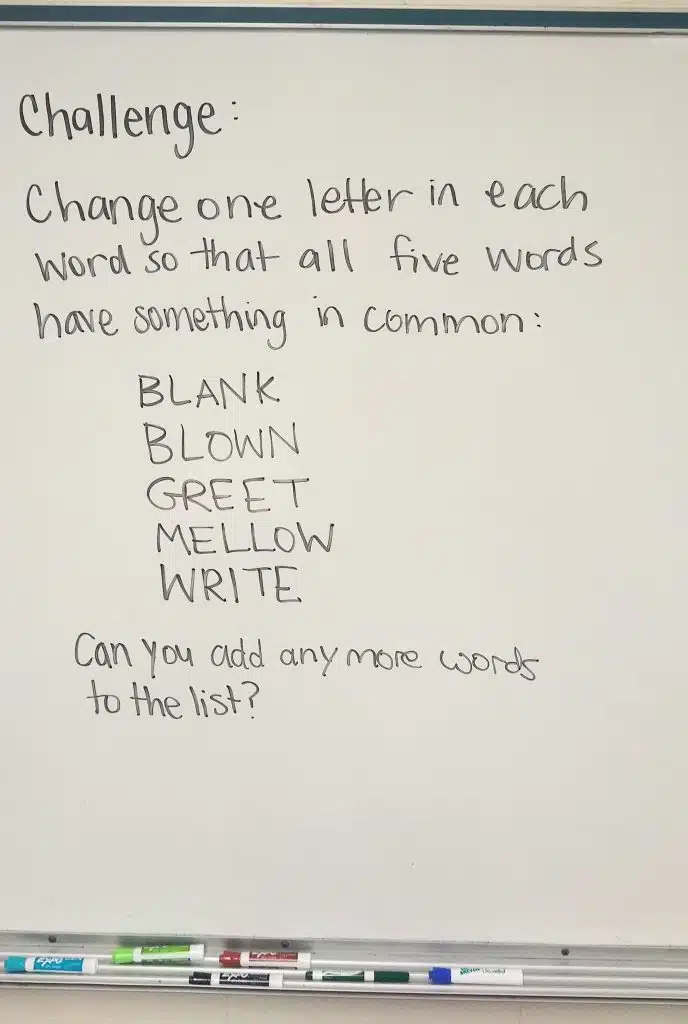 Challenge:
Change one letter in each
word so that all five words
have something in common:
BLANK
BLOWN
GREET
MELLOW
WRITE
Can you add any more words
to the list?
EXPO
EXPO
EXPO